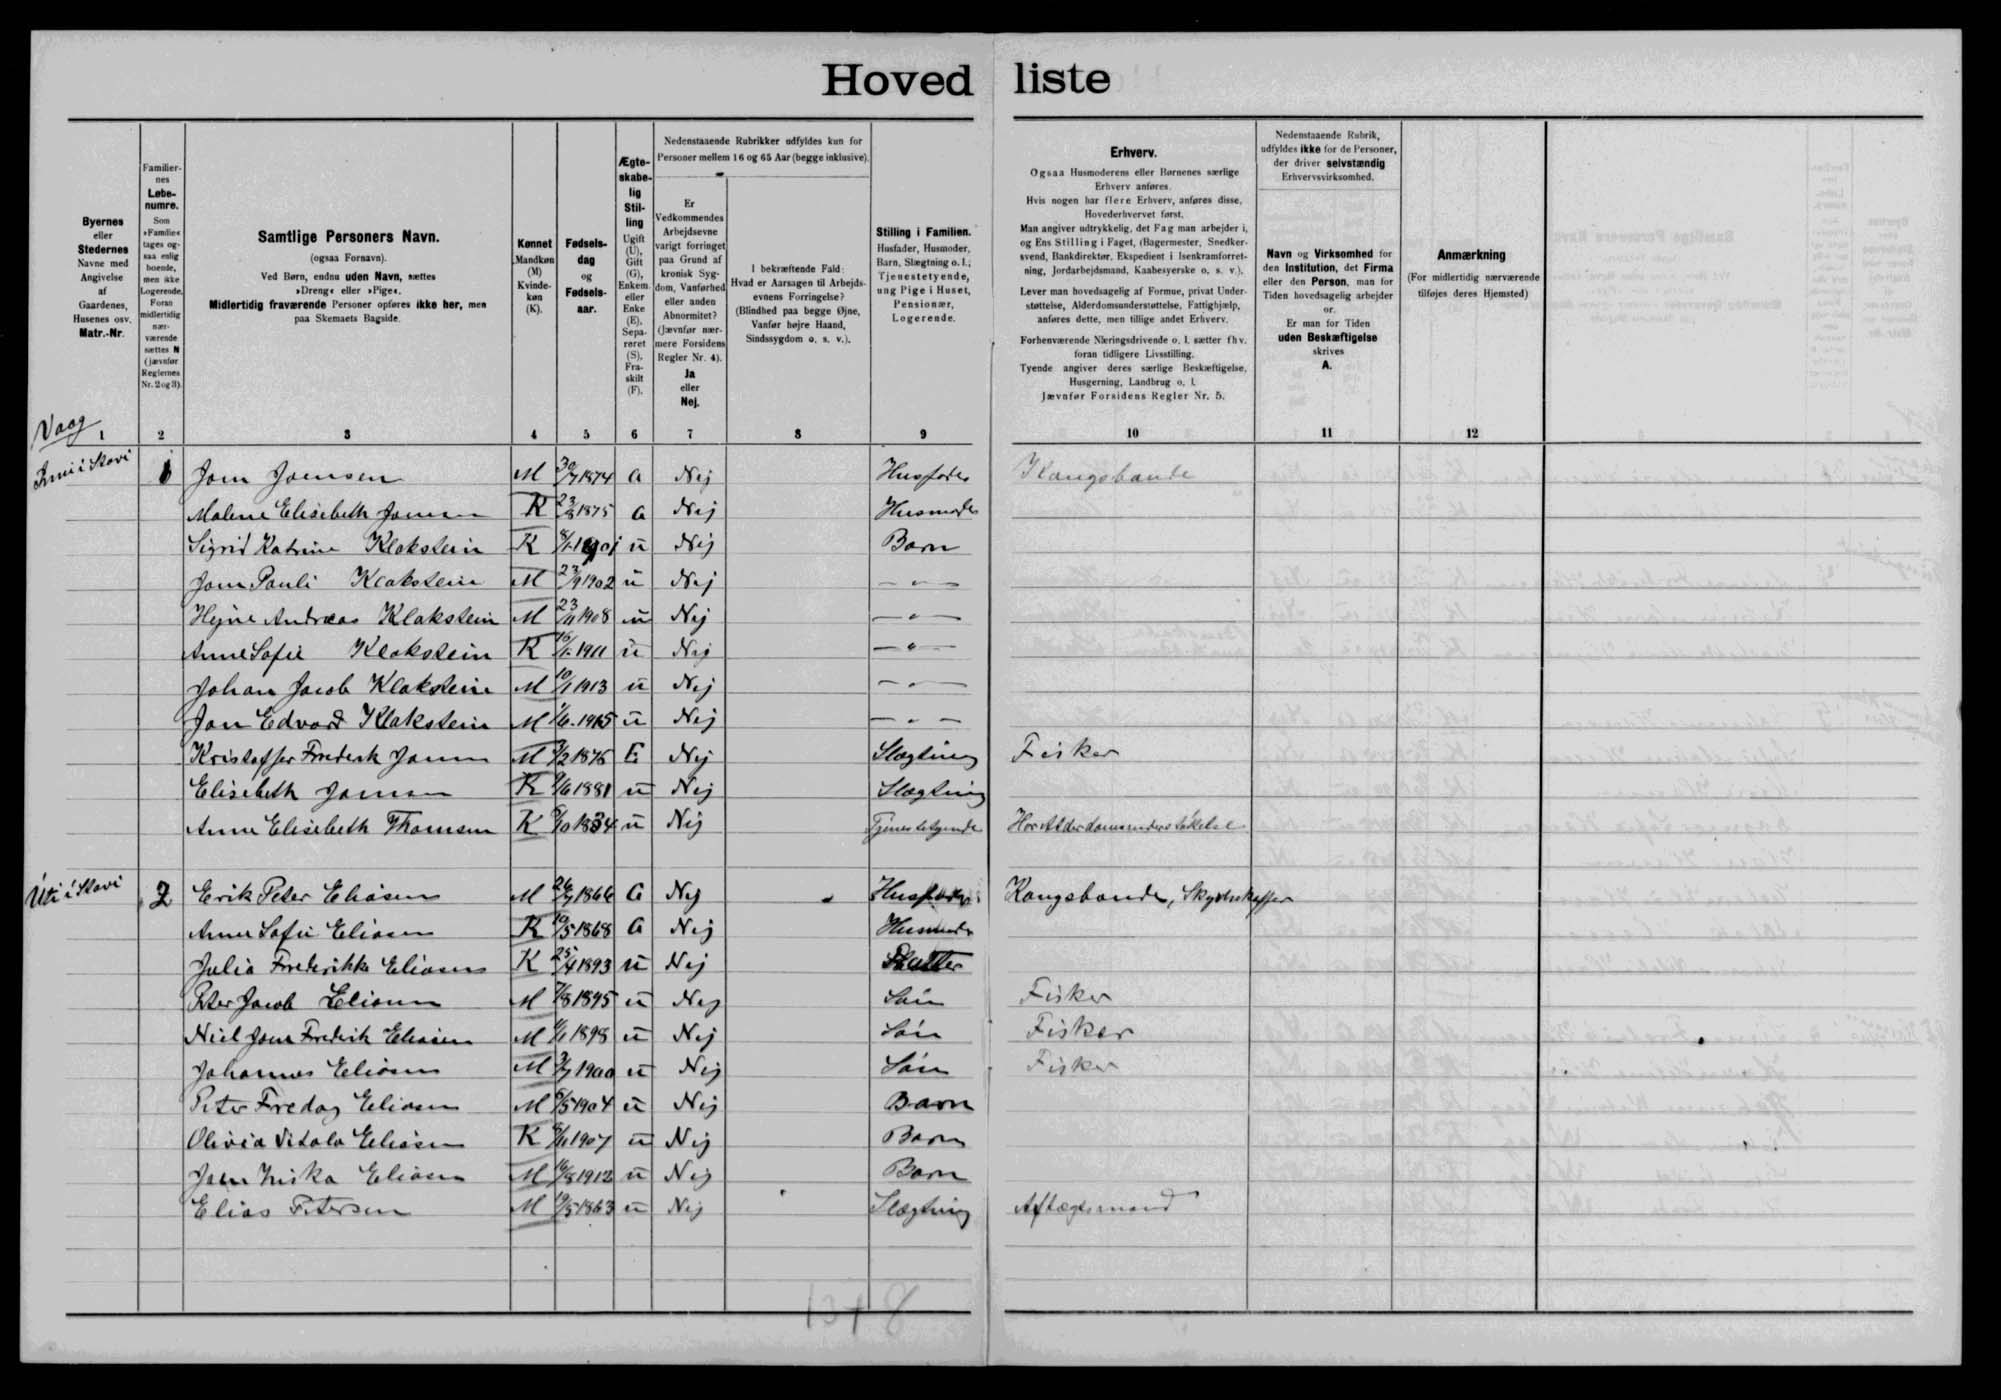 Hovedliste
Byernes eller Stedernes Navne med Angivelse af Gaardenes, Husenes osv. Matr.-Nr.
Familiernes Løbenumre. Som »Familie« tages ogsaa enlig boende, men ikke Logerende. Foran midlertidig nærværende sættes N (jævnfør Reglernes Nr. 2 og 3).
Samtlige Personers Navn. (ogsaa Fornavn). Ved Børn, endnu uden Navn, sættes »Dreng« eller »Pige«. Midlertidig fraværende Personer opføres ikke her, men paa Skemaets Bagside.
Kønnet Mandkøn (M) Kvindekøn (K).
Fødselsdag og Fødselsaar.
Ægteskabelig Stilling Ugift (U), Gift (G), Enkem. eller Enke (E), Separeret (S), Fraskilt (F).
Nedenstaaende Rubrikker udfyldes kun for Personer mellem 16 og 65 Aar (begge inklusive).
Er Vedkommendes Arbejdsevne varigt forringet paa Grund af kronisk Sygdom, Vanførhed eller anden Abnormitet? (Jævnfør nærmere Forsidens Regler Nr. 4). Ja eller Nej.
I bekræftende Fald: Hvad er Aarsagen til Arbejdsevnens Forringelse? (Blindhed paa begge Øjne, Vanfør højre Haand, Sindssygdom o. s. v.).
Stilling i Familien. Husfader, Husmoder, Barn, Slægtning o.l.; Tjenestetyende, ung Pige i Huset, Pensionær, Logerende.
Erhverv. Ogsaa Husmoderens eller Børnenes særlige Erhverv anføres. Hvis nogen har flere Erhverv, anføres disse, Hovederhvervet først. Man angiver udtrykkelig, det Fag man arbejder i, og Ens Stilling i Faget, (Bagermester, Snedkersvend, Bankdirektør, Ekspedient i Isenkramforretning, Jordarbejdsmand, Kaabesyerske o. s. v.). Lever man hovedsagelig af Formue, privat Understøttelse, Alderdomsunderstøttelse, Fattighjælp, anføres dette, men tillige andet Erhverv. Forhenværende Næringsdrivende o. l. sætter fhv. foran tidligere Livsstilling. Tyende angiver deres særlige Beskæftigelse, Husgerning, Landbrug o. l. Jævnfør Forsidens Regler Nr. 5.
Nedenstaaende Rubrik, udfyldes ikke for de Personer, der driver selvstændig Erhvervsvirksomhed.
Navn og Virksomhed for den Institution, det Firma eller den Person, man for Tiden hovedsagelig arbejder or. Er man for Tiden uden Beskæftigelse skrives A.
Anmærkning (For midlertidig nærværende tilføjes deres Hjemsted)
Vaag
1 2 3 4 5 6 7 8 9 10 11 12
Inni i Stovi 1 Jom Joensen M 30/7 1874 G Nej Husfader Kongsbonde
Malene Elisebeth Joensen K 23/8 1875 G Nej Husmoder
Sigrid Katrine Klakstein K 8/1 1901 u Nej Barn
Jom Pauli Klakstein M 23/9 1902 u Nej - " -
Hejne Andreas Klakstein M 23/11 1908 u Nej - " -
Anne Sofie Klakstein K 16/1 1911 u Nej - " -
Johan Jacob Klakstein M 10/1 1913 u Nej - " -
Jon Edvard Klakstein M 1/6 1915 u Nej - " -
Kristoffer Frederik Joensen M /2 1876 E Nej Slægtning Fisker
Elisebeth Joensen K /6 1881 u Nej Slægtning
Anne Elisebeth Thomsen K 6/10 1834 u Nej Tjenestetyende Har Alderdomsunderstøttelse
Úti i Stovi 2 Erik Peter Eliasen M 26/7 1866 G Nej Husfader Kongsbonde, Skydsskaffer
Anne Sofie Eliasen K 10/5 1868 G Nej Husmoder
Julia Frederikke Eliasen K 25/4 1893 u Nej Datter
Peter Jacob Eliasen M 7/8 1895 u Nej Søn Fisker
Niel Jom Frederik Eliasen M /1 1898 u Nej Søn Fisker
Johannes Eliasen M 3/7 1900 u Nej Søn Fisker
Peter Fredag Eliasen M 6/5 1904 u Nej Barn
Olivia Vitalo Eliasen K 8/11 1907 u Nej Barn
Jom Eliasen M 16/8 1912 u Nej Barn
Elias Petersen M 19/5 1863 u Nej Slægtning Aftægtsmand
13 + 8